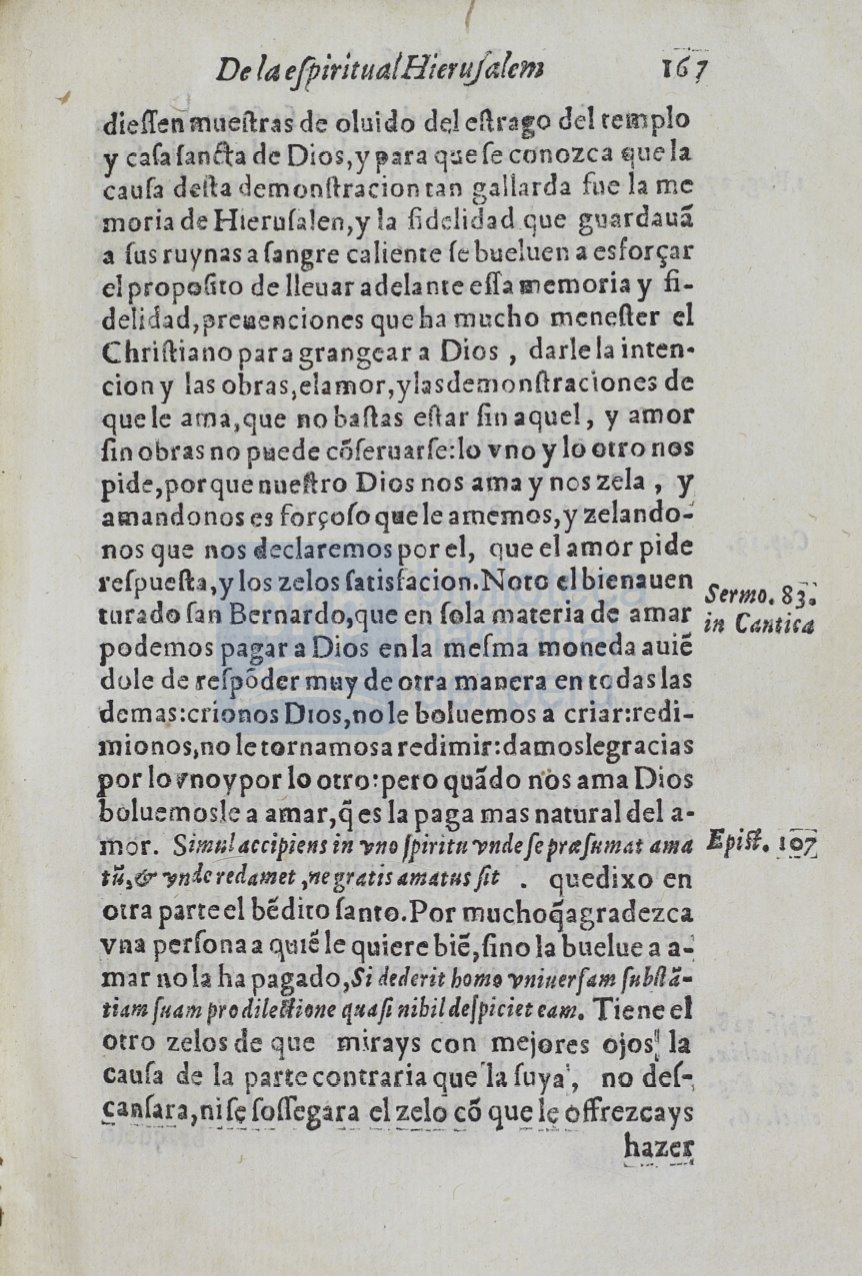 De la eſpiritual Hieruſalem 167
dieſſen mueſtras de oluido del eſtrago del templo
y caſa ſancta de Dios, y para que ſe conozca que la
cauſa deſta demonſtracion tan gallarda fue la me
moria de Hieruſalen, y la fidelidad que guardauã
a ſus ruynas a ſangre caliente ſe bueluen a esforçar
el propoſito de lleuar adelante eſſa memoria y fi-
delidad, preuenciones que ha mucho meneſter el
Chriſtiano para grangear a Dios , darle la inten-
cion y las obras, el amor, y las demonſtraciones de
que le ama, que no baſtas eſtar ſin aquel, y amor
ſin obras no puede cõſeruarſe: lo vno y lo otro nos
pide, porque nueſtro Dios nos ama y nos zela , y
amandonos es forçoſo que le amemos, y zelando-
nos que nos declaremos por el, que el amor pide
reſpueſta, y los zelos ſatisfacion. Noto el bienauen
turado ſan Bernardo, que en ſola materia de amar
podemos pagar a Dios en la meſma moneda auiẽ
dole de reſpõder muy de otra manera en todas las
demas: crionos Dios, no le boluemos a criar: redi-
mionos, no le tornamos a redimir: damosle gracias
por lo vno y por lo otro: pero quãdo nos ama Dios
boluemosle a amar, q̃ es la paga mas natural del a-
mor. Simul accipiens in vno ſpiritu vnde ſe præſumat ama
tũ, & vnde redamet, ne gratis amatus ſit . que dixo en
otra parte el bẽdito ſanto. Por mucho q̃ agradezca
vna perſona a quiẽ le quiere biẽ, ſino la buelue a a-
mar no la ha pagado, Si dederit homo vniuerſam ſubſtã-
tiam ſuam pro dilectione quaſi nihil deſpiciet eam. Tiene el
otro zelos de que mirays con mejores ojos la
cauſa de la parte contraria que la ſuya, no deſ-
canſara, ni ſe ſoſſegara el zelo cõ que le offrezcays
hazer
Sermo. 83.
in Cantica
Epiſt. 107